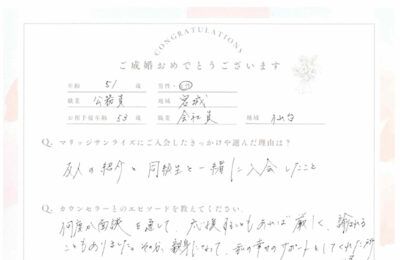 CONGRATULATIONS
ご成婚おめでとうございます
年齢 51 歳 男性・
職業 公務員 地域 宮城
お相手様年齢 53 歳 職業 会社員 地域 仙台
Q. マリッジサンライズにご入会したきっかけや選んだ理由は?
友人の紹介と同級生と一緒に入会したこと
Q. カウンセラーとのエピソードを教えてください。
何度か面談を通して、応援することもあれば厳しく、諭される
こともありました。その分、親身になって、私の幸せのサポートとしてくれた